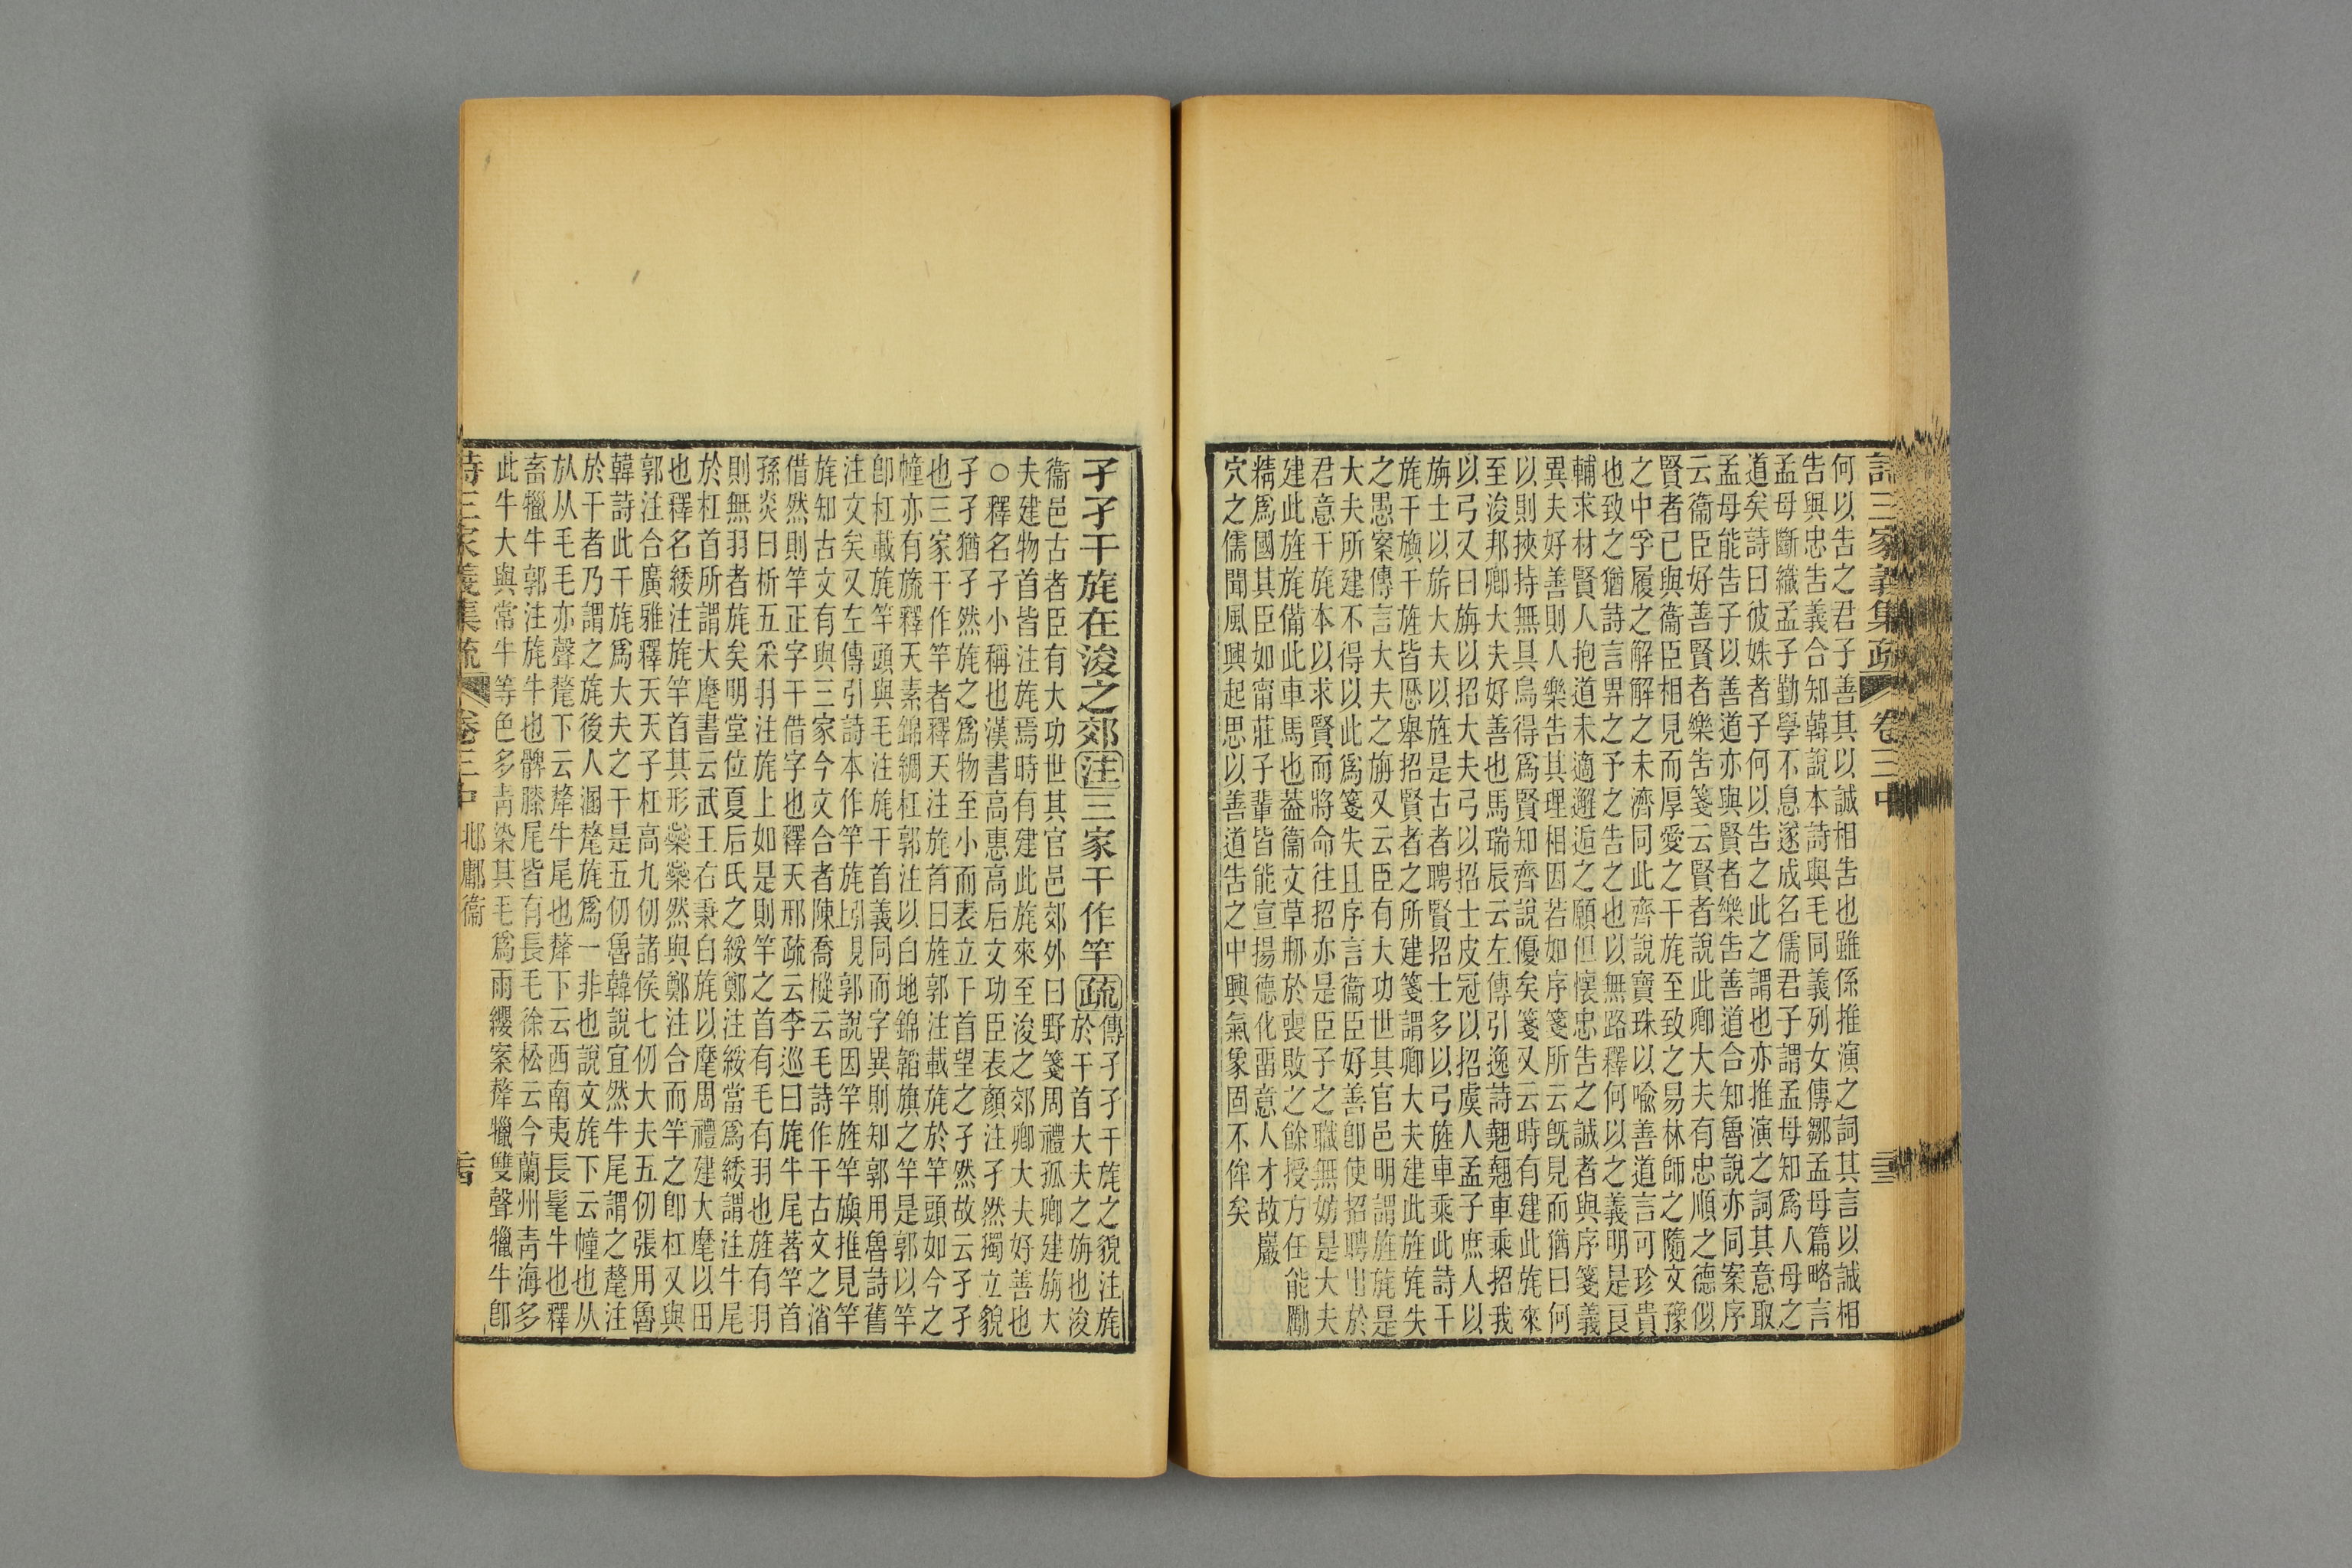 詩三家義集疏 卷三中
何以告之君子善其以誠相告也雖係推演之詞其言以誠相
告與忠告義合知韓說本詩與毛同義列女傳鄒孟母篇略言
孟母斷織孟子勤學不息遂成名儒君子謂孟母知爲人母之
道矣詩曰彼姝者子何以告之此之謂也亦推演之詞其意取
孟母能告子以善道亦與賢者樂告善道合知魯說亦同案序
云衞臣好善賢者樂告箋云賢者說此卿大夫有忠順之德似
賢者已與衞臣相見而厚愛之干旄至致之易林師之隨文豫
之中孚履之解解之未濟同此齊說寶珠以喻善道言可珍貴
也致之猶詩言畀之予之告之也以無路釋何以之義明是良
輔求材賢人抱道未適邂逅之願但懷忠告之誠者與序箋義
異夫好善則人樂告其理相因若如序箋所云既見而猶曰何
以則挾持無具烏得爲賢知齊說優矣箋又云時有建此旄來
至浚邦卿大夫好善也馬瑞辰云左傳引逸詩翹翹車乘招我
以弓又曰旃以招大夫弓以招士皮冠以招虞人孟子庶人以
旃士以旂大夫以旌是古者聘賢招士多以弓旌車乘此詩干
旄干旟干旌皆歷舉招賢者之所建箋謂卿大夫建此旌旄失
之愚案傳言大夫之旃又云臣有大功世其官邑明謂旌旄是
大夫所建不得以此爲箋失且序言衞臣好善卽使招聘出於
君意干旄本以求賢而將命往招亦是臣子之職無妨是大夫
建此旌旄備此車馬也葢衞文草刱於喪敗之餘授方任能勵
精爲國其臣如甯莊子輩皆能宣揚德化畱意人才故巖
穴之儒聞風興起思以善道告之中興氣象固不侔矣
孑孑干旄在浚之郊注三家干作竿疏傳孑孑干旄之貌注旄
於干首大夫之旃也浚
衞邑古者臣有大功世其官邑郊外曰野箋周禮孤卿建旃大
夫建物首皆注旄焉時有建此旄來至浚之郊卿大夫好善也
○釋名孑小稱也漢書高惠高后文功臣表顏注孑然獨立貌
孑孑猶孑然旄之爲物至小而表立干首望之孑然故云孑孑
也三家干作竿者釋天注旄首曰旌郭注載旄於竿頭如今之
幢亦有旒釋天素錦綢杠郭注以白地錦韜旗之竿是郭以竿
卽杠載旄竿頭與毛注旄干首義同而字異則知郭用魯詩舊
注文矣又左傳引詩本作竿旄引見郭說因竿旌竿旟推見竿
旄知古文有與三家今文合者陳喬樅云毛詩作干古文之渻
借然則竿正字干借字也釋天邢疏云李巡曰旄牛尾著竿首
孫炎曰析五采羽注旄上如是則竿之首有毛有羽也旌有羽
則無羽者旄矣明堂位夏后氏之綏鄭注綏當爲緌謂注牛尾
於杠首所謂大麾書云武王右秉白旄以麾周禮建大麾以田
也釋名緌注旄竿首其形橤橤然與鄭注合而竿之卽杠又與
郭注合廣雅釋天天子杠高九仞諸侯七仞大夫五仞張用魯
韓詩此干旄爲大夫之干是五仞魯韓說宜然牛尾謂之氂注
於干者乃謂之旄後人溷氂旄爲一非也說文旄下云幢也从
㫃从毛毛亦聲氂下云犛牛尾也犛下云西南夷長髦牛也釋
畜犣牛郭注旄牛也髀膝尾皆有長毛徐松云今蘭州青海多
此牛大與常牛等色多青染其毛爲雨纓案犛犣雙聲犣牛卽
詩三家義集疏 卷三中 邶鄘衞